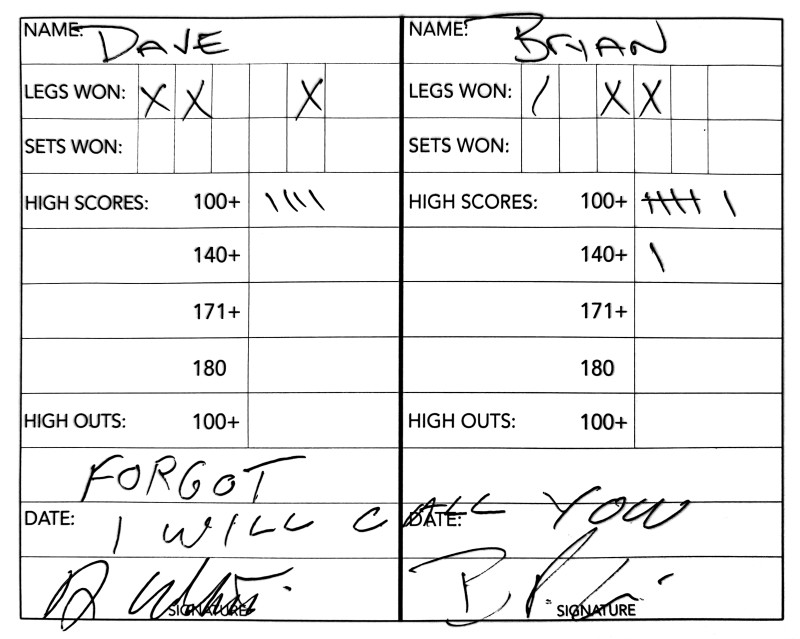 NAME: DAVE NAME: BRYAN
LEGS WON: X X X LEGS WON: / X X
SETS WON: SETS WON:
HIGH SCORES: 100+ \||| HIGH SCORES: 100+ 卌 \
140+ 140+ \
171+ 171+
180 180
HIGH OUTS: 100+ HIGH OUTS: 100+
FORGOT
DATE: DATE:
I WILL CALL YOU
SIGNATURE SIGNATURE